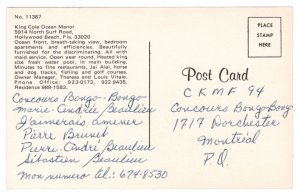 No. 11387
King Cole Ocean Manor
5914 North Surf Road,
Hollywood Beach, Fla. 33020
Ocean front, breath-taking view, bedroom
apartments and efficiencies. Beautifully
furnished for the discriminating. All with
maid service. Open year round. Heated king
size fresh water pool, in main building.
Minutes to fine restaurants, Jai Alai, horse
and dog tracks, fishing and golf courses.
Owner Manager, Theresa and Louis Vitale.
Phone Office 923-0172, 923-9435.
Residence 989-1582.
PLACE
STAMP
HERE
Post Card
Concours Bongo-Bongo
Marie-Andrée Beaulieu
J'aimerais amener
Pierre Brunet
Pierre-André Beaulieu
Sébastien Beaulieu
Mon numero tel: 674-8530
CKMF 94
Concours Bongo Bong
1717 Dorchester
Montréal
P.Q.